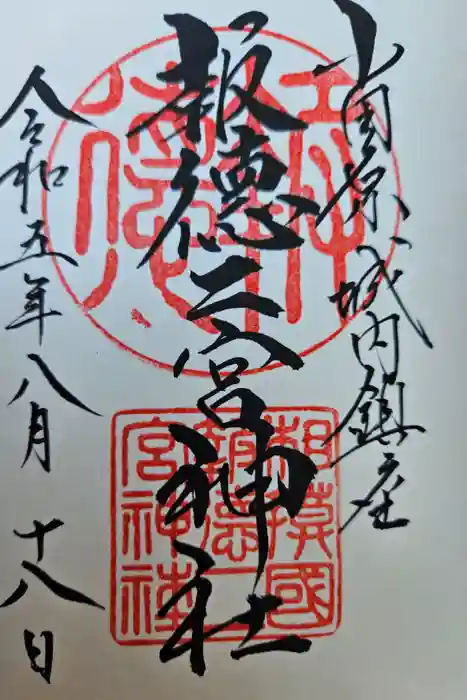 小田原城内鎮座
報徳二宮神社
令和五年八月十八日
相模國
報徳二
宮神社